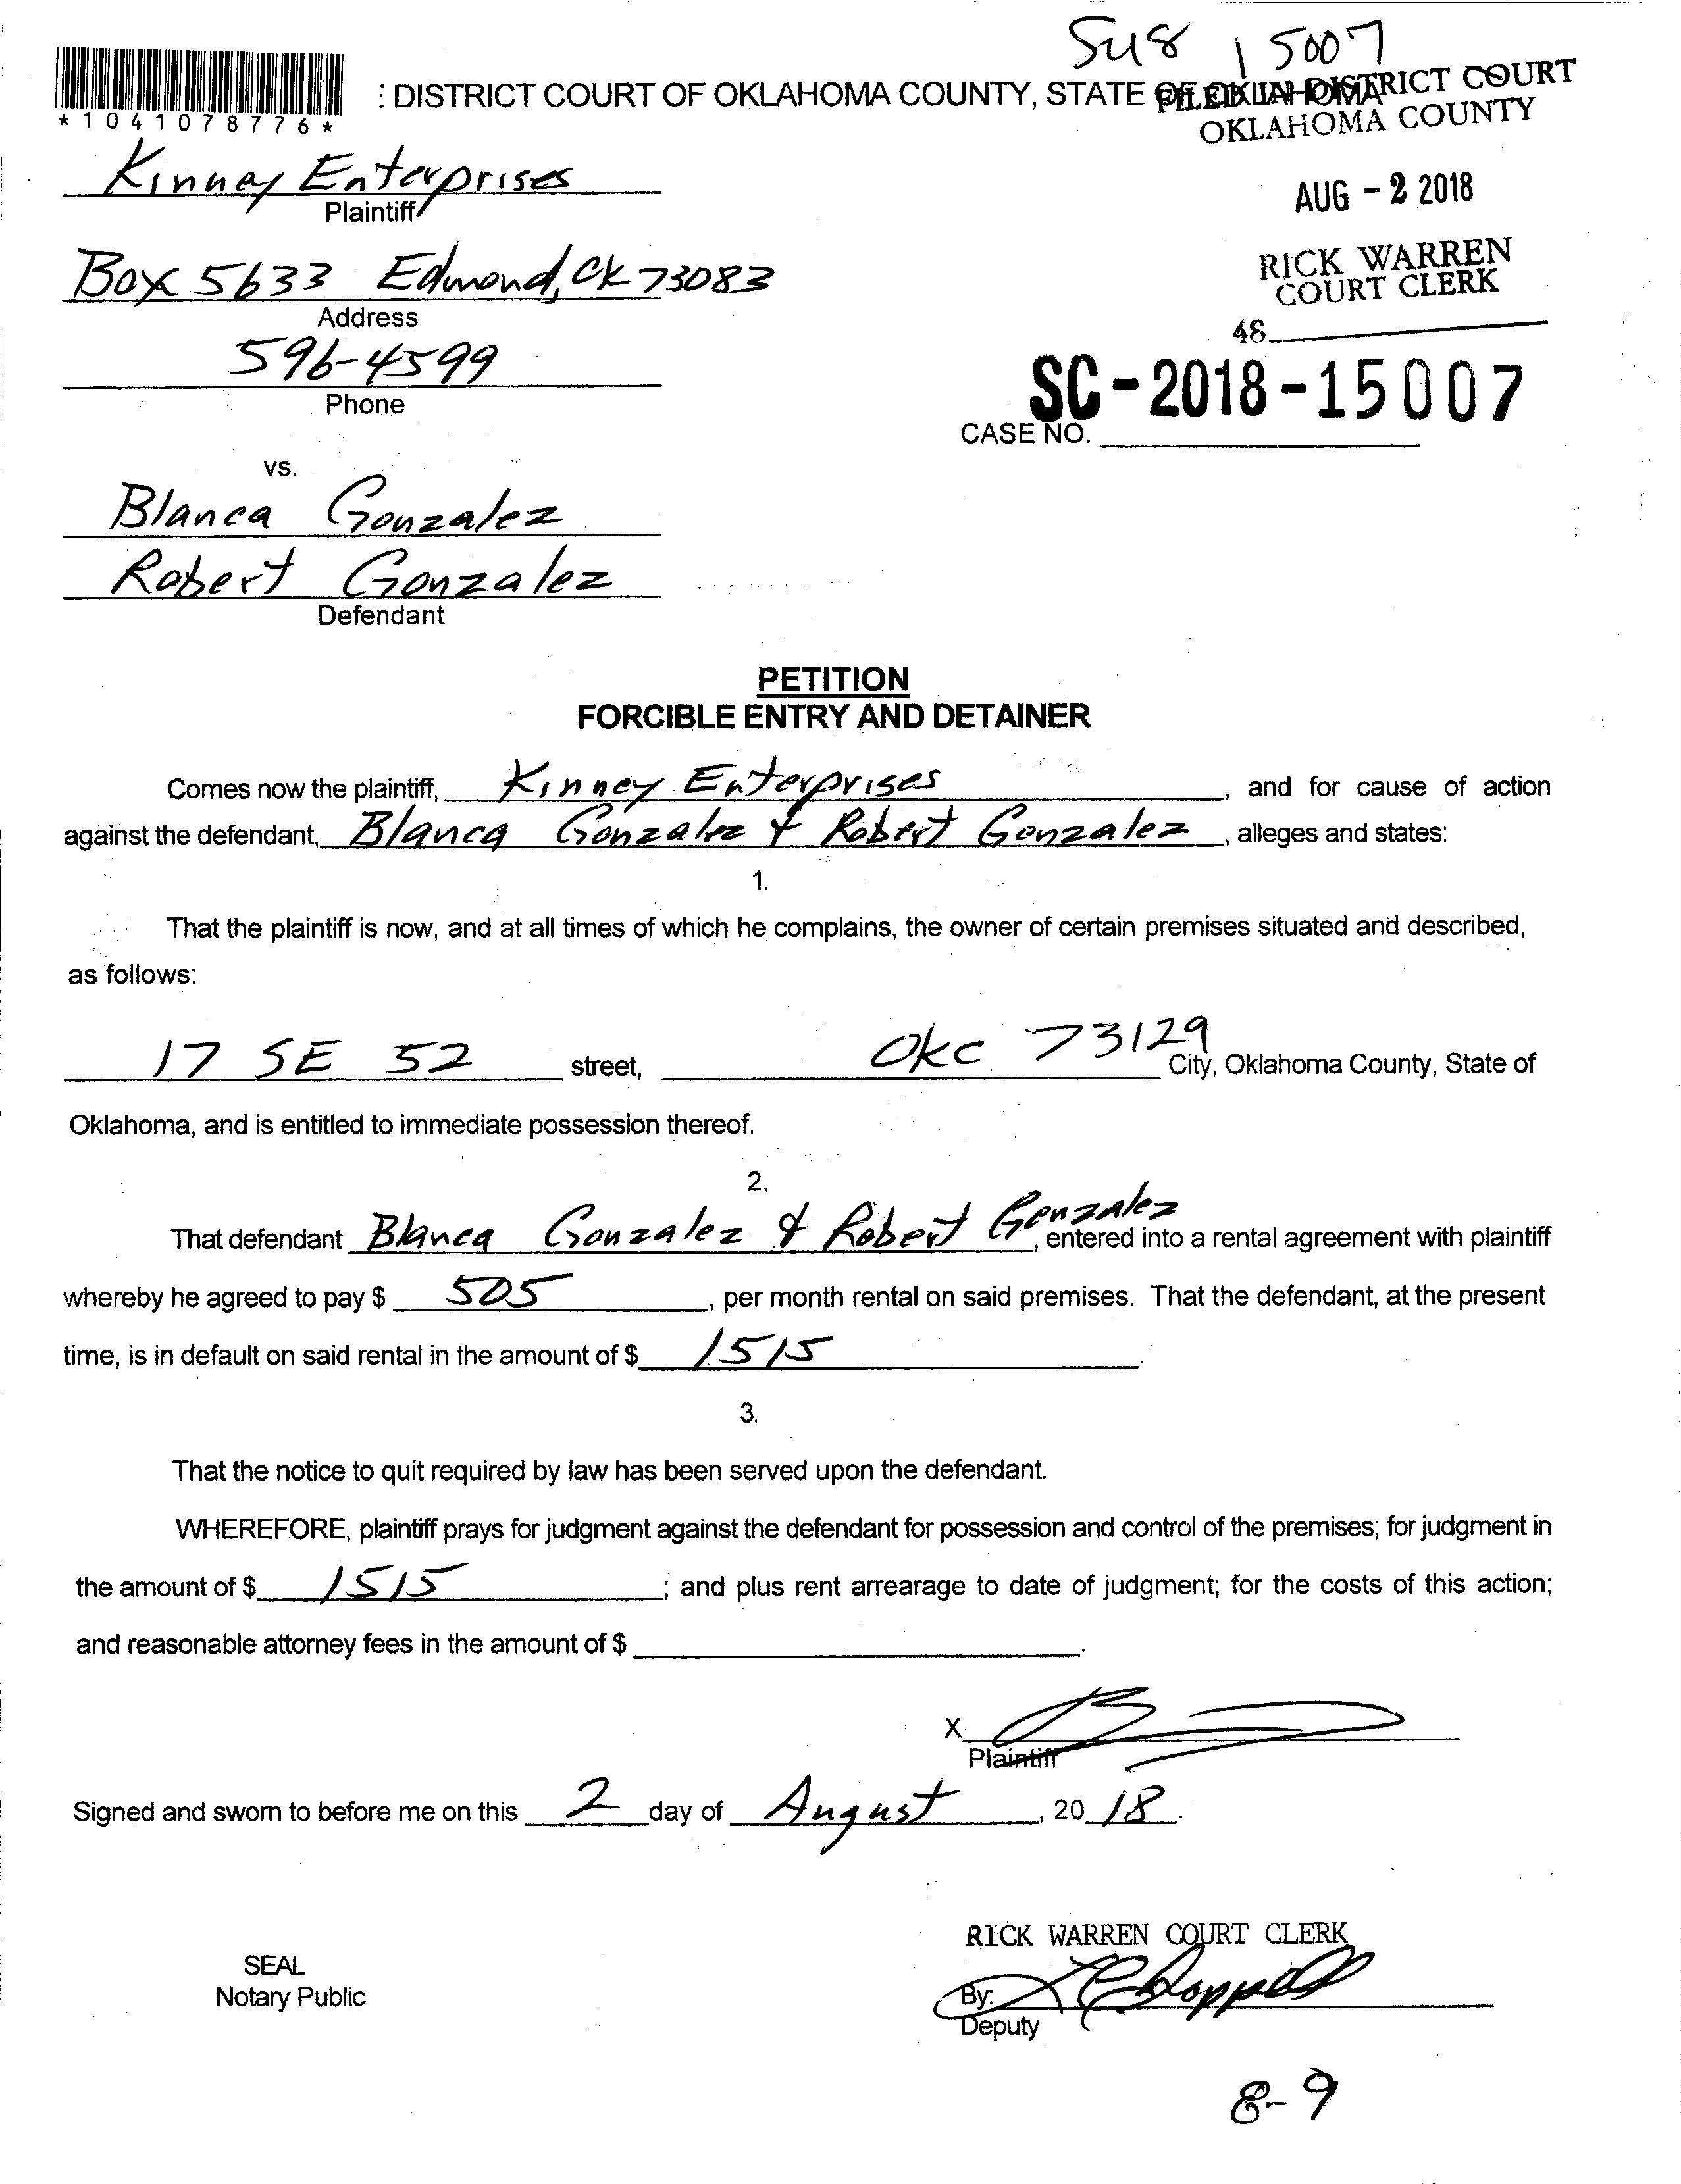 Su8 15007
: DISTRICT COURT OF OKLAHOMA COUNTY, STATE OF OKLAHOMA
FILED IN DISTRICT COURT
OKLAHOMA COUNTY
*1041078776*
Kinney Enterprises
Plaintiff
AUG - 2 2018
Box 5633 Edmond, OK 73083
Address
RICK WARREN
COURT CLERK
48
596-4599
Phone
SC-2018-15007
CASE NO.
vs.
Blanca Gonzalez
Robert Gonzalez
Defendant
PETITION
FORCIBLE ENTRY AND DETAINER
Comes now the plaintiff, Kinney Enterprises, and for cause of action
against the defendant, Blanca Gonzalez & Robert Gonzalez, alleges and states:
1.
That the plaintiff is now, and at all times of which he complains, the owner of certain premises situated and described,
as follows:
17 SE 52 street, OKC 73129 City, Oklahoma County, State of
Oklahoma, and is entitled to immediate possession thereof.
2.
That defendant Blanca Gonzalez & Robert Gonzalez, entered into a rental agreement with plaintiff
whereby he agreed to pay $ 505, per month rental on said premises. That the defendant, at the present
time, is in default on said rental in the amount of $ 1515.
3.
That the notice to quit required by law has been served upon the defendant.
WHEREFORE, plaintiff prays for judgment against the defendant for possession and control of the premises; for judgment in
the amount of $ 1515; and plus rent arrearage to date of judgment; for the costs of this action;
and reasonable attorney fees in the amount of $ .
X
Plaintiff
Signed and sworn to before me on this 2 day of August, 20 18.
RICK WARREN COURT CLERK
SEAL
Notary Public
By:
Deputy
8-9